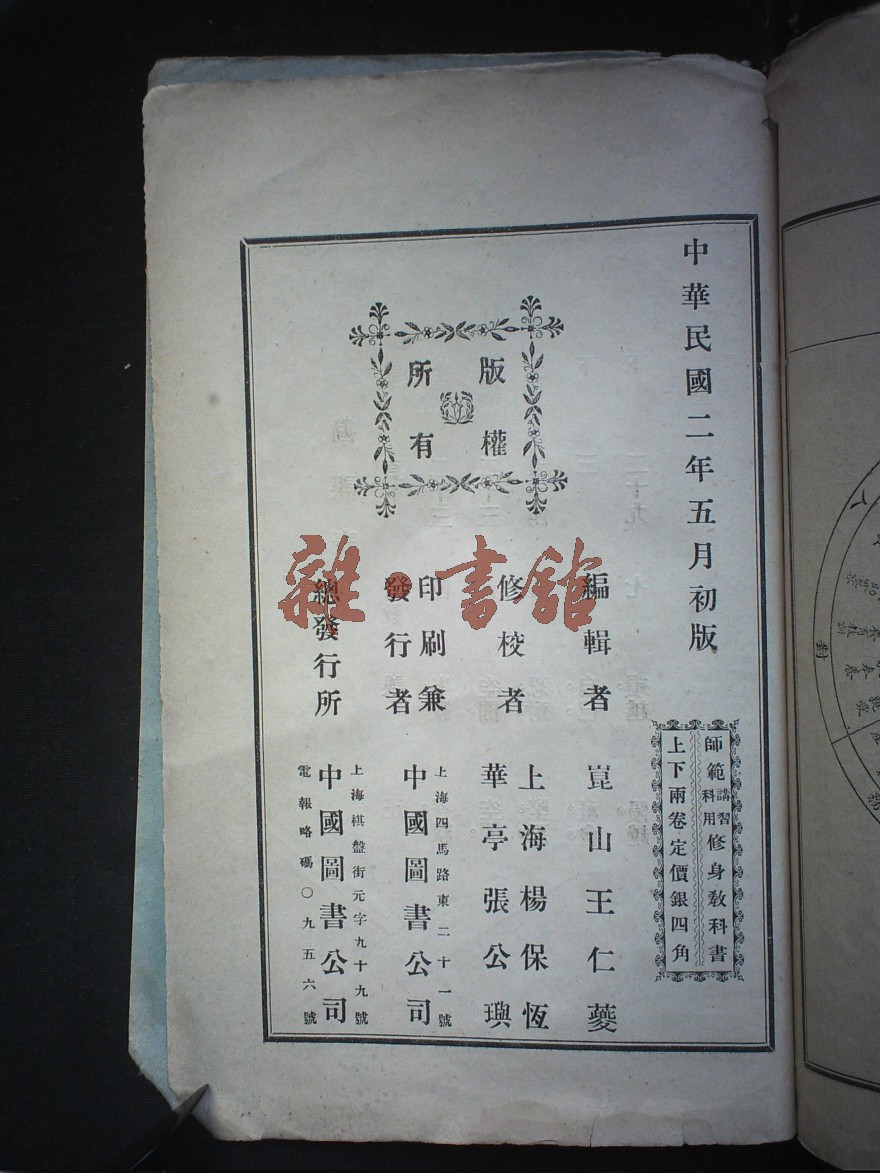 中華民國二年五月初版
師範講習科用修身教科書
上下兩卷定價銀四角
版權所有
編輯者 崑山王仁夔
修校者 上海楊保恆
華亭張公璵
印刷兼發行者
上海四馬路東二十一號
中國圖書公司
總發行所
上海棋盤街元字九十九號
中國圖書公司
電報略碼〇九五六號
雜·書館
對